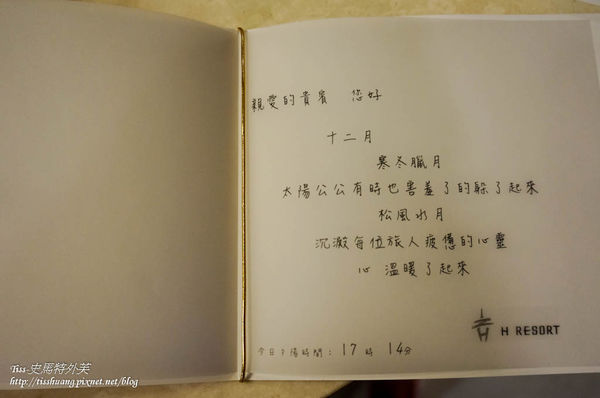 親愛的貴賓 您好
十二月
寒冬臘月
太陽公公有時也害羞了的躲了起來
松風水月
沉澱每位旅人疲憊的心靈
心 溫暖了起來
H RESORT
今日夕陽時間：17時 14分
Tiss-史馬特外芙
http://tisshuang.pixnet.net/blog